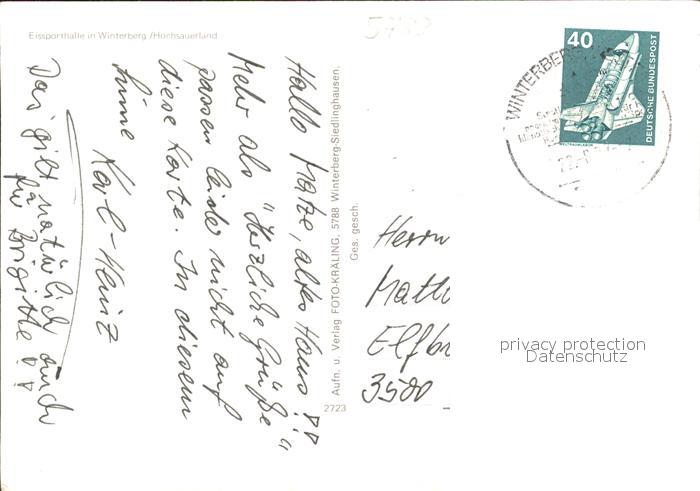 Eissporthalle in Winterberg /Hochsauerland
Hallo Matze, altes Haus !!
Mehr als "Herzliche Grüße"
passen leider nicht auf
diese Karte. In diesem
Sinne Karl-Heinz
Das gilt natürlich auch
für Brigitte !!
Aufn. u. Verlag FOTO-KRÄLING, 5788 Winterberg-Siedlinghausen.
Ges. gesch.
2723
40
DEUTSCHE BUNDESPOST
WELTRAUMLABOR
WINTERBERG
Herrn
Matth
Elfbu
3500
privacy protection
Datenschutz